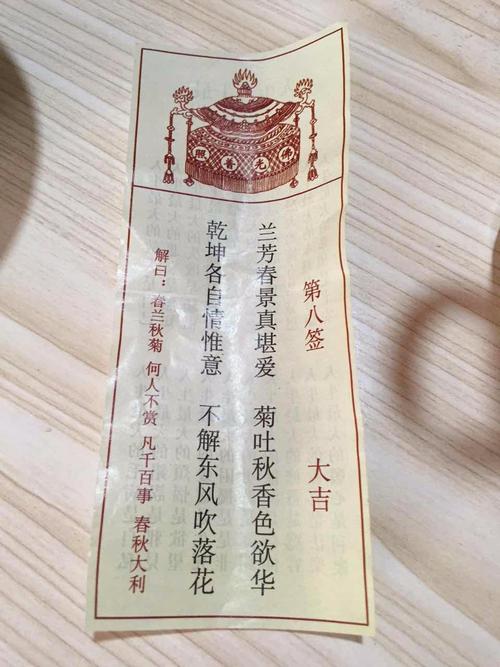 佛光普照
第八签 大吉
兰芳春景真堪爱 菊吐秋香色欲华
乾坤各自情惟意 不解东风吹落花
解曰：春兰秋菊 何人不赏 凡千百事 春秋大利